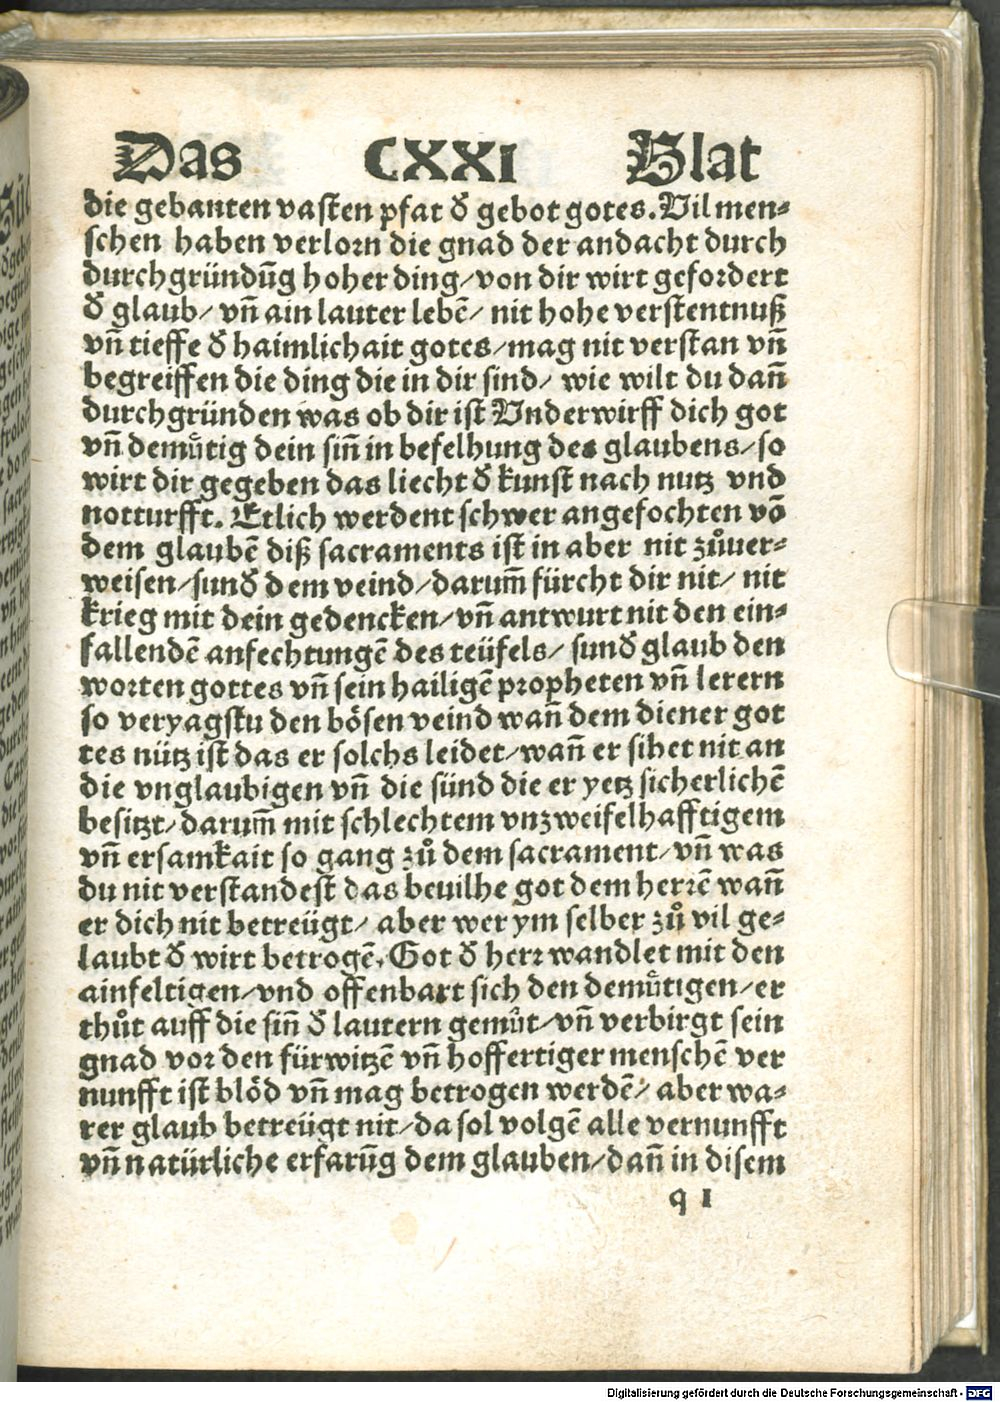 Das CXXI Blat
die gebanten vasten pfat d̕ gebot gotes. Vil men⸗
schen haben verlorn die gnad der andacht durch
durchgründūg hoher ding/von dir wirt gefordert
d̕ glaub/ vn̄ ain lauter lebē/ nit hohe verstentnuß
vn̄ tieffe d̕ haimlichait gotes/mag nit verstan vn̄
begreiffen die ding die in dir sind/ wie wilt du dan̄
durchgründen was ob dir ist Vnderwirff dich got
vn̄ demuͤtig dein sin̄ in befelhung des glaubens/so
wirt dir gegeben das liecht d̕ kunst nach nutz vnd
notturfft. Etlich werdent schwer angefochten vō
dem glaubē diß sacraments ist in aber nit zuͦuer⸗
weisen/sund̕ dem veind/darum̄ fürcht dir nit/ nit
krieg mit dein gedencken/vn̄ antwurt nit den ein⸗
fallendē anfechtungē des teüfels/ sund̕ glaub den
worten gottes vn̄ sein hailigē propheten vn̄ lerern
so veryagstu den bösen veind wan̄ dem diener got
tes nütz ist das er solchs leidet/wan̄ er sihet nit an
die vnglaubigen vn̄ die sünd die er yetz sicherlichē
besitzt/darum̄ mit schlechtem vnzweifelhafftigem
vn̄ ersamkait so gang zuͦ dem sacrament/vn̄ was
du nit verstandest das beuilhe got dem herrē wan̄
er dich nit betreügt/ aber wer ym selber zuͦ vil ge⸗
laubt d̕ wirt betrogē. Got d̕ herr wandlet mit den
ainfeltigen/vnd offenbart sich den demuͤtigen/er
thuͦt auff die sin̄ d̕ lautern gemuͤt/vn̄ verbirgt sein
gnad vor den fürwitzē vn̄ hoffertiger menschē ver
nunfft ist blöd vn̄ mag betrogen werdē/ aber wa⸗
rer glaub betreügt nit/da sol volgē alle vernunfft
vn̄ natürliche erfarūg dem glauben/dan̄ in disem
q I
Digitalisierung gefördert durch die Deutsche Forschungsgemeinschaft - DFG